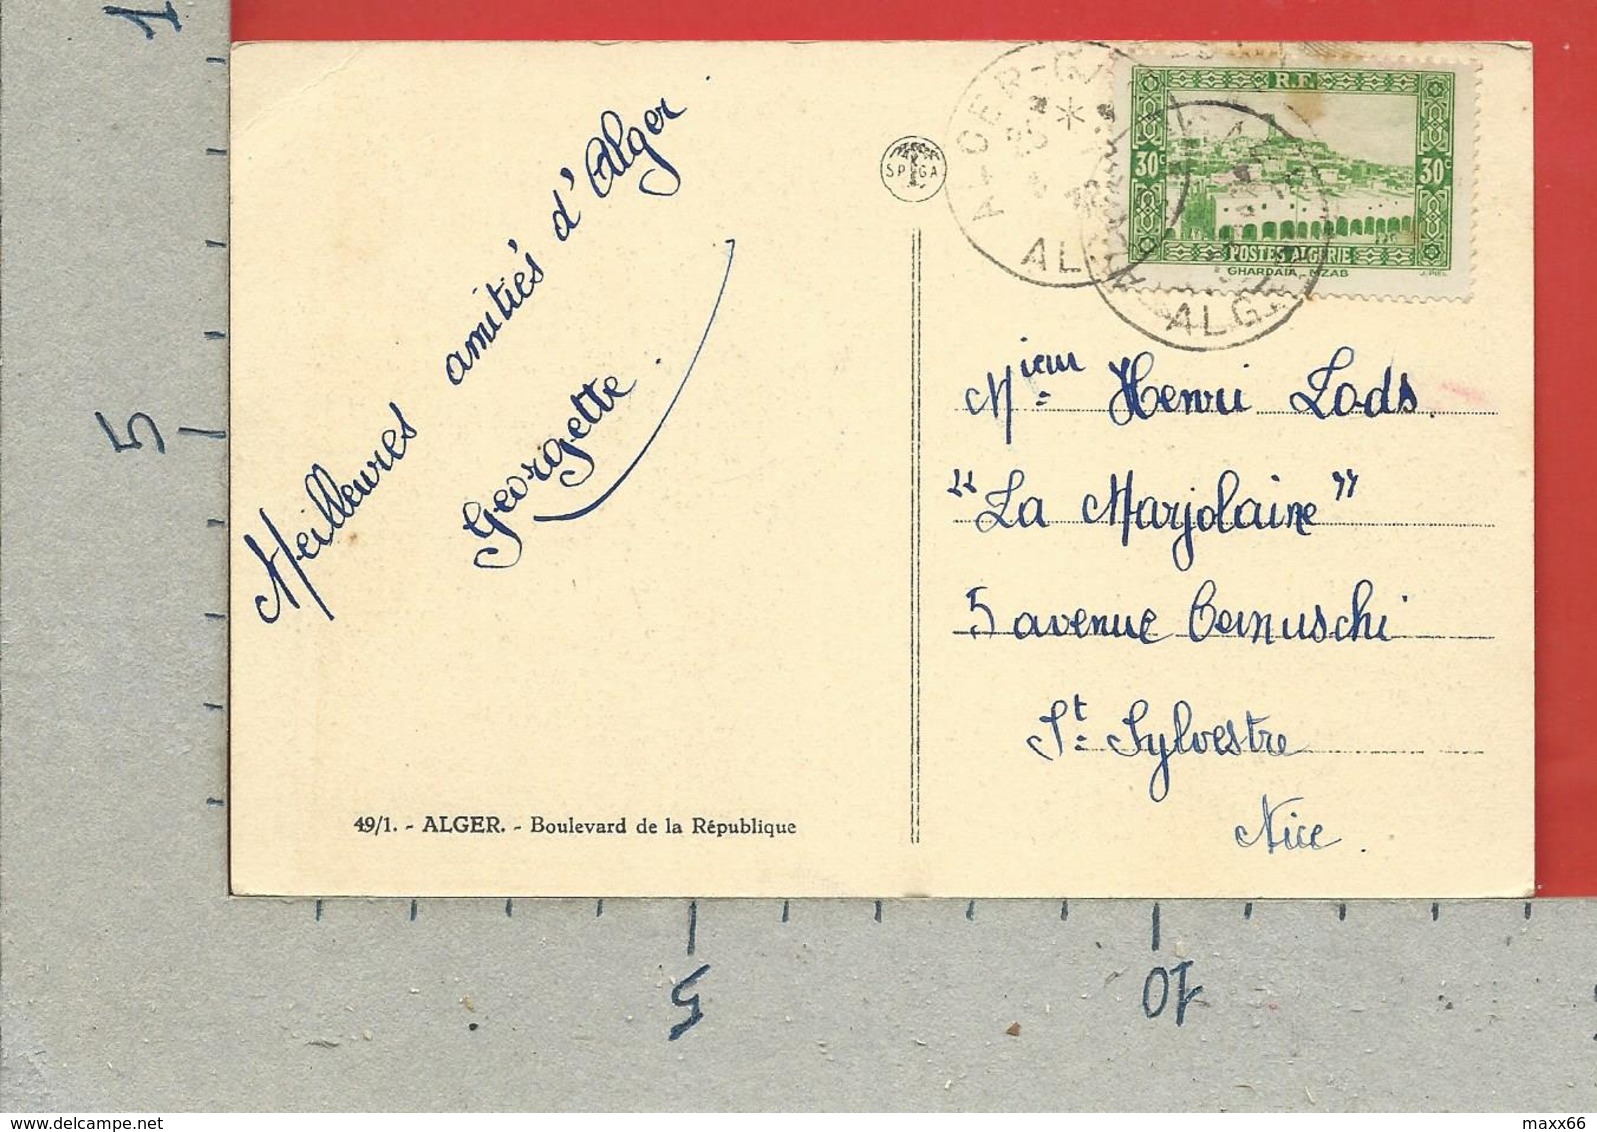 Meilleures amitiés d'Alger
Georgette.
49/1. - ALGER. - Boulevard de la République
SPGA
ALGER-G
AL
ALG
R.F.
30c
30c
POSTES ALGERIE
GHARDAIA, MZAB
Mieur Henri Lods.
"La Marjolaine"
5 avenue Cernuschi
St. Sylvestre
Nice.
1
5
5
10
delcampe.net
maxx66